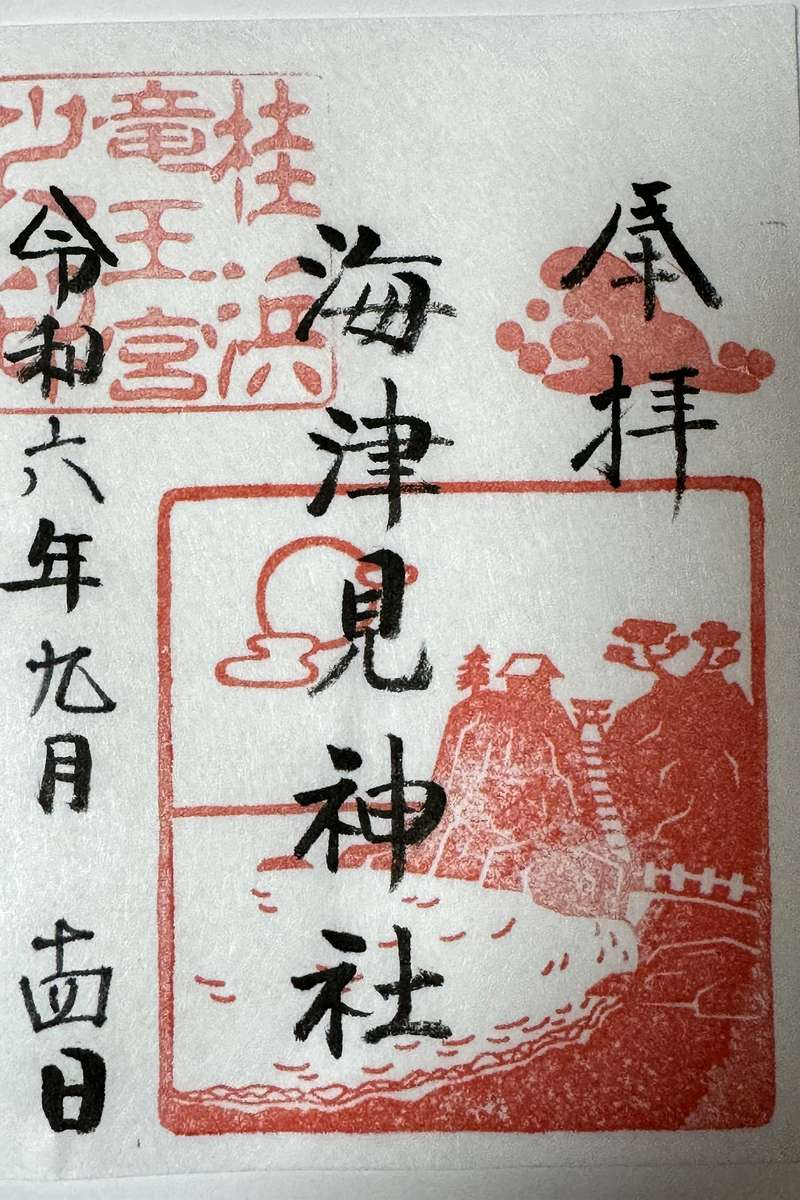 奉拝
海津見神社
令和六年九月十四日
桂浜
竜王宮
之印